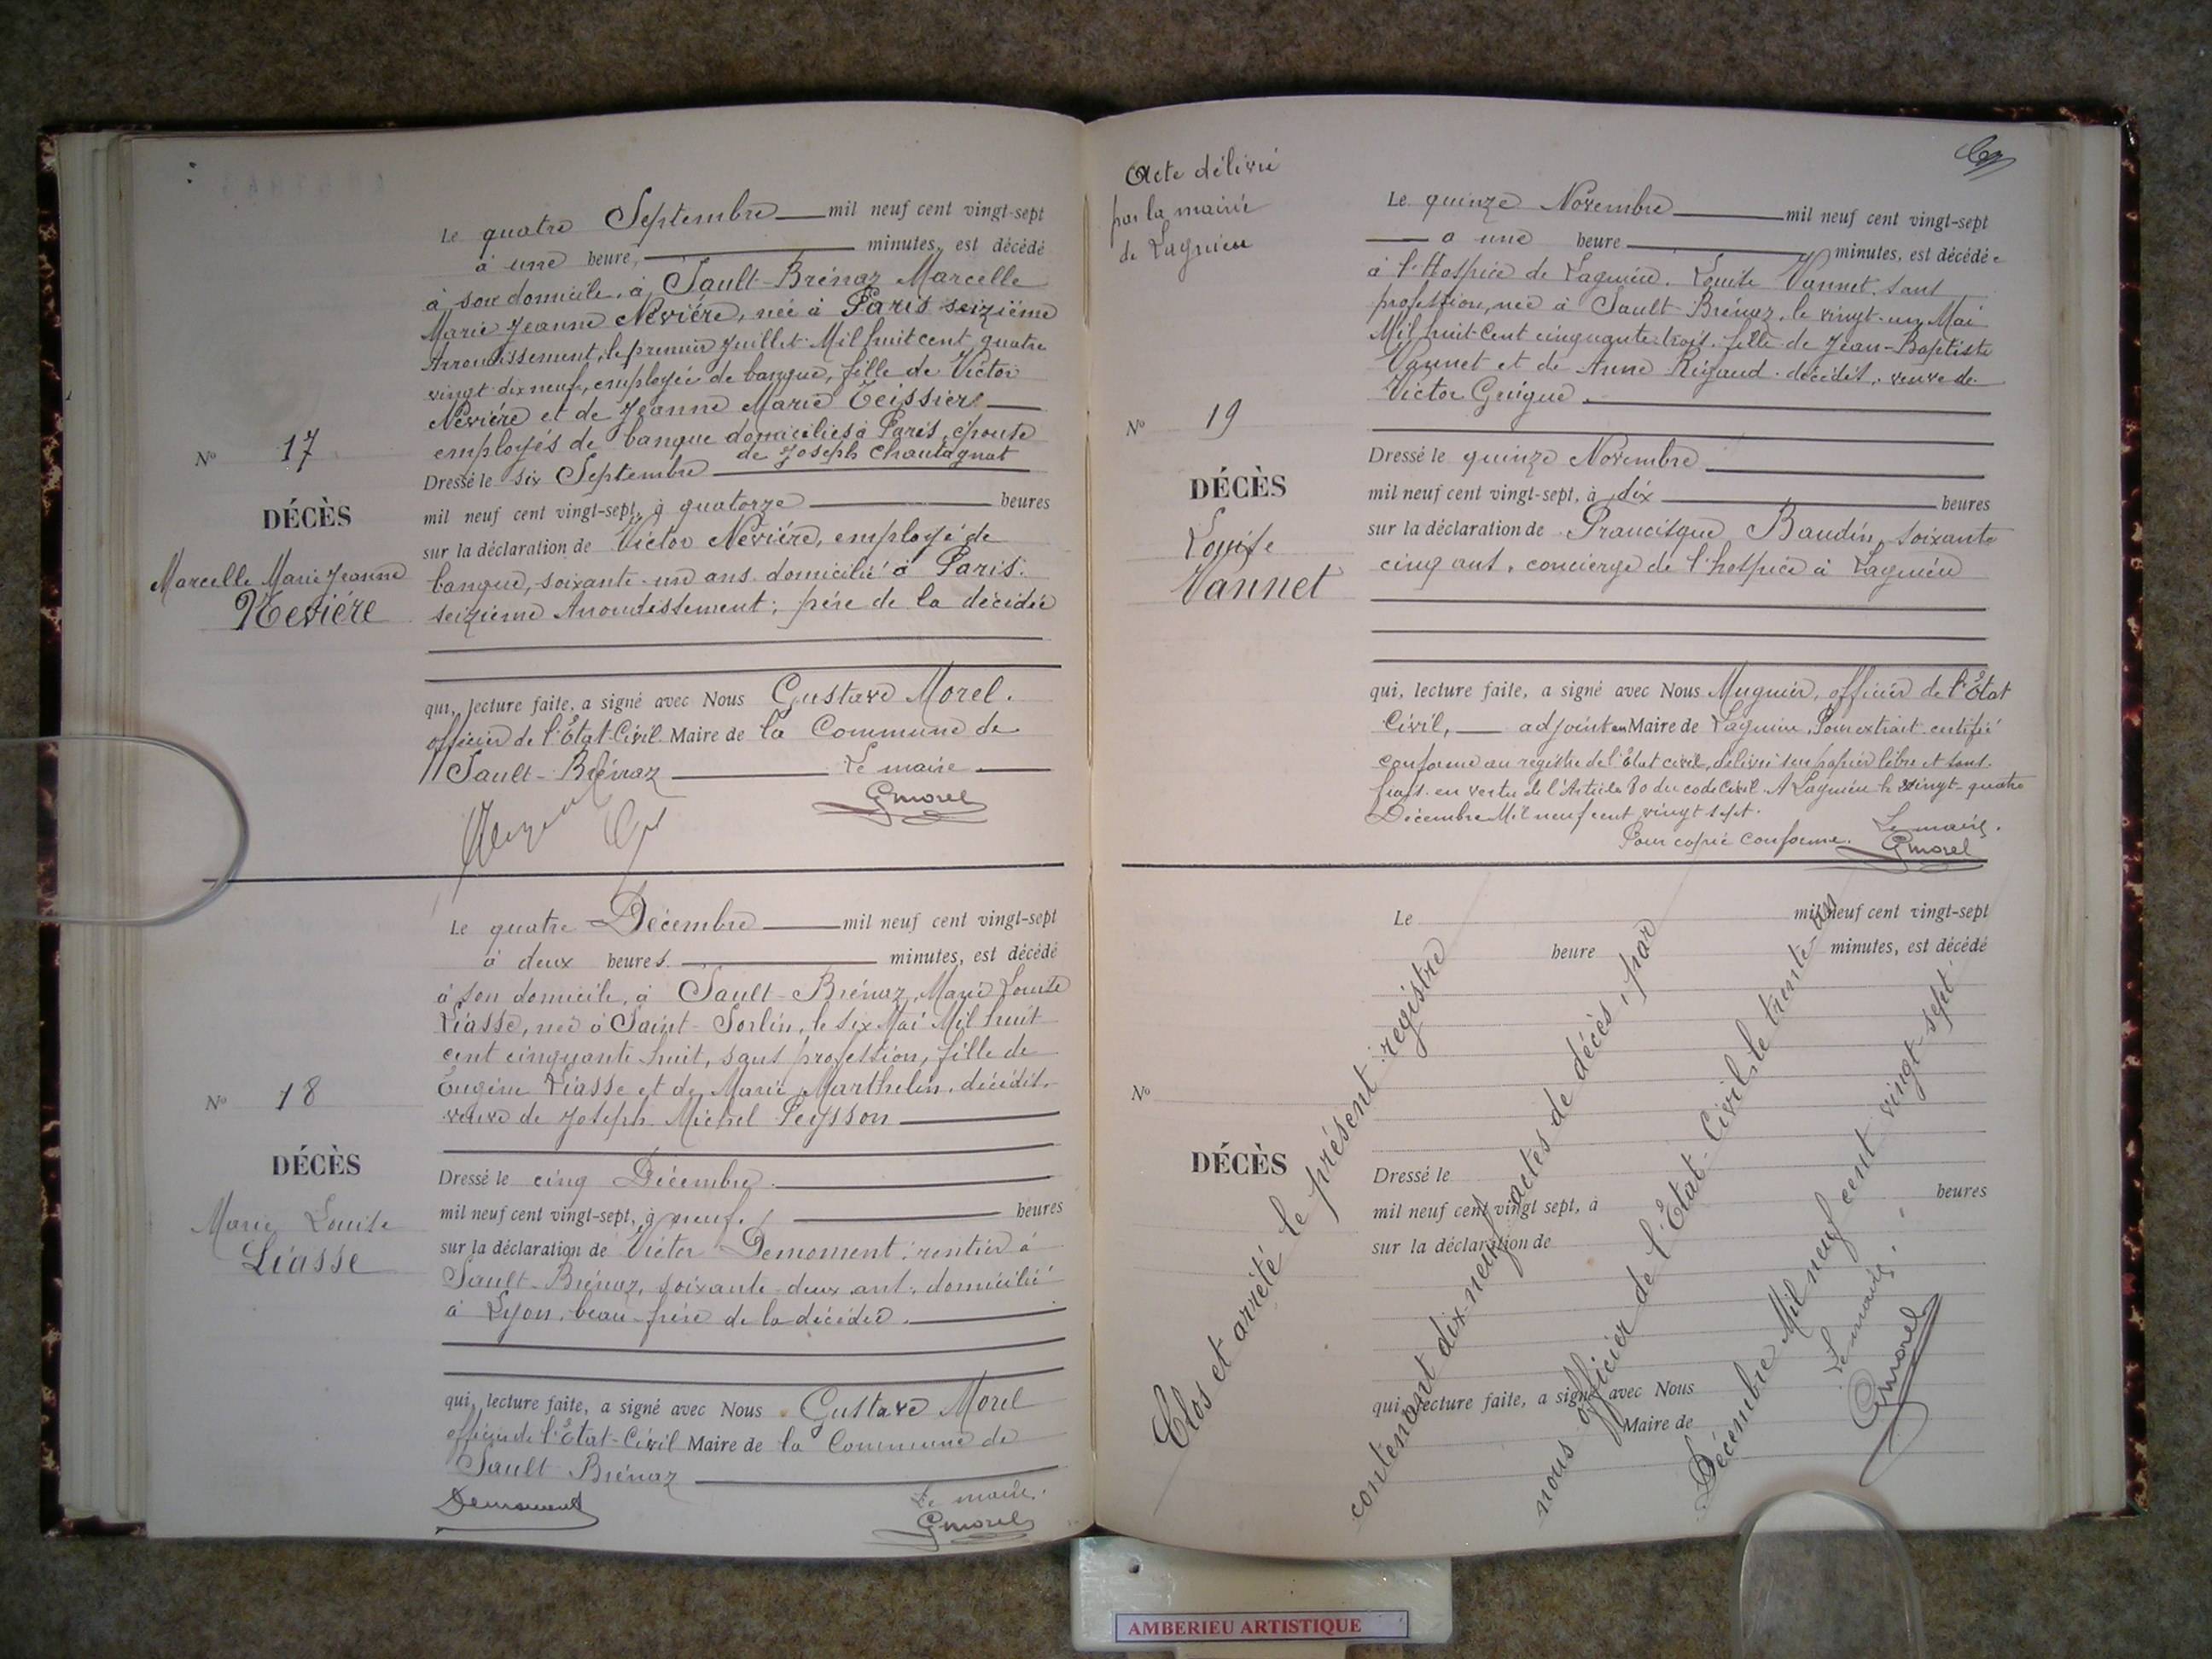 Le quatre Septembre mil neuf cent vingt-sept
à une heure, minutes, est décédé
à son domicile, à Sault-Brénaz Marcelle
Marie Jeanne Nevière, née à Paris seizième
Arrondissement, le premier Juillet Mil huit cent quatre
vingt dix neuf, employée de banque, fille de Victor
Nevière et de Jeanne Marie Teissier
employés de banque domiciliés à Paris, épouse
de Joseph Chautagnat
N° 17
DÉCÈS
Marcelle Marie Jeanne
Nevière
Dressé le six Septembre
mil neuf cent vingt-sept, à quatorze heures
sur la déclaration de Victor Nevière, employé de
banque, soixante-un ans domicilié à Paris
seizième Arrondissement; père de la décédée
qui, lecture faite, a signé avec Nous Gustave Morel.
officier de l'État-Civil Maire de la Commune de
Sault-Brénaz Le maire
GMorel
Le quatre Décembre mil neuf cent vingt-sept
à deux heures minutes, est décédé
à son domicile, à Sault-Brénaz, Marie Louise
Liasse, née à Saint-Sorlin, le six Mai Mil huit
cent cinquante huit, sans profession, fille de
Eugène Liasse et de Marie Marthelin, décédés,
veuve de Joseph Michel Peysson
N° 18
DÉCÈS
Marie Louise
Liasse
Dressé le cinq Décembre
mil neuf cent vingt-sept, à neuf heures
sur la déclaration de Victor Demoment, rentier à
Sault-Brénaz, soixante-deux ans, domicilié
à Lyon, beau-frère de la décédée.
qui, lecture faite, a signé avec Nous Gustave Morel
officier de l'État-Civil Maire de la Commune de
Sault Brénaz
Demoment
Le maire.
GMorel
Acte délivré
par la mairie
de Lagnieu
Le quinze Novembre mil neuf cent vingt-sept
à une heure minutes, est décédée
à l'Hospice de Lagnieu, Louise Vannet, sans
profession, née à Sault-Brénaz, le vingt-un Mai
Mil huit Cent cinquante trois, fille de Jean-Baptiste
Vannet et de Anne Rigaud, décédés, veuve de
Victor Guigue.
N° 19
DÉCÈS
Louise
Vannet
Dressé le quinze Novembre
mil neuf cent vingt-sept, à dix heures
sur la déclaration de Francisque Baudin, soixante
cinq ans, concierge de l'hospice à Lagnieu
qui, lecture faite, a signé avec Nous Mugnier, officier de l'État
Civil, adjoint au Maire de Lagnieu, Pour extrait certifié
conforme au registre de l'État civil, délivré sur papier libre et sans
frais en vertu de l'Article 80 du code Civil. A Lagnieu le vingt-quatre
Décembre Mil neuf cent vingt sept.
Pour copie conforme. Le maire.
GMorel
Le mil neuf cent vingt-sept
heure minutes, est décédé
N°
DÉCÈS
Dressé le
mil neuf cent vingt sept, à heures
sur la déclaration de
qui, lecture faite, a signé avec Nous
Maire de
Clos et arrêté le présent registre
contenant dix-neuf actes de décès, par
nous officier de l'État-Civil, le trente-un
Décembre Mil neuf cent vingt-sept.
Le maire
GMorel
AMBERIEU ARTISTIQUE